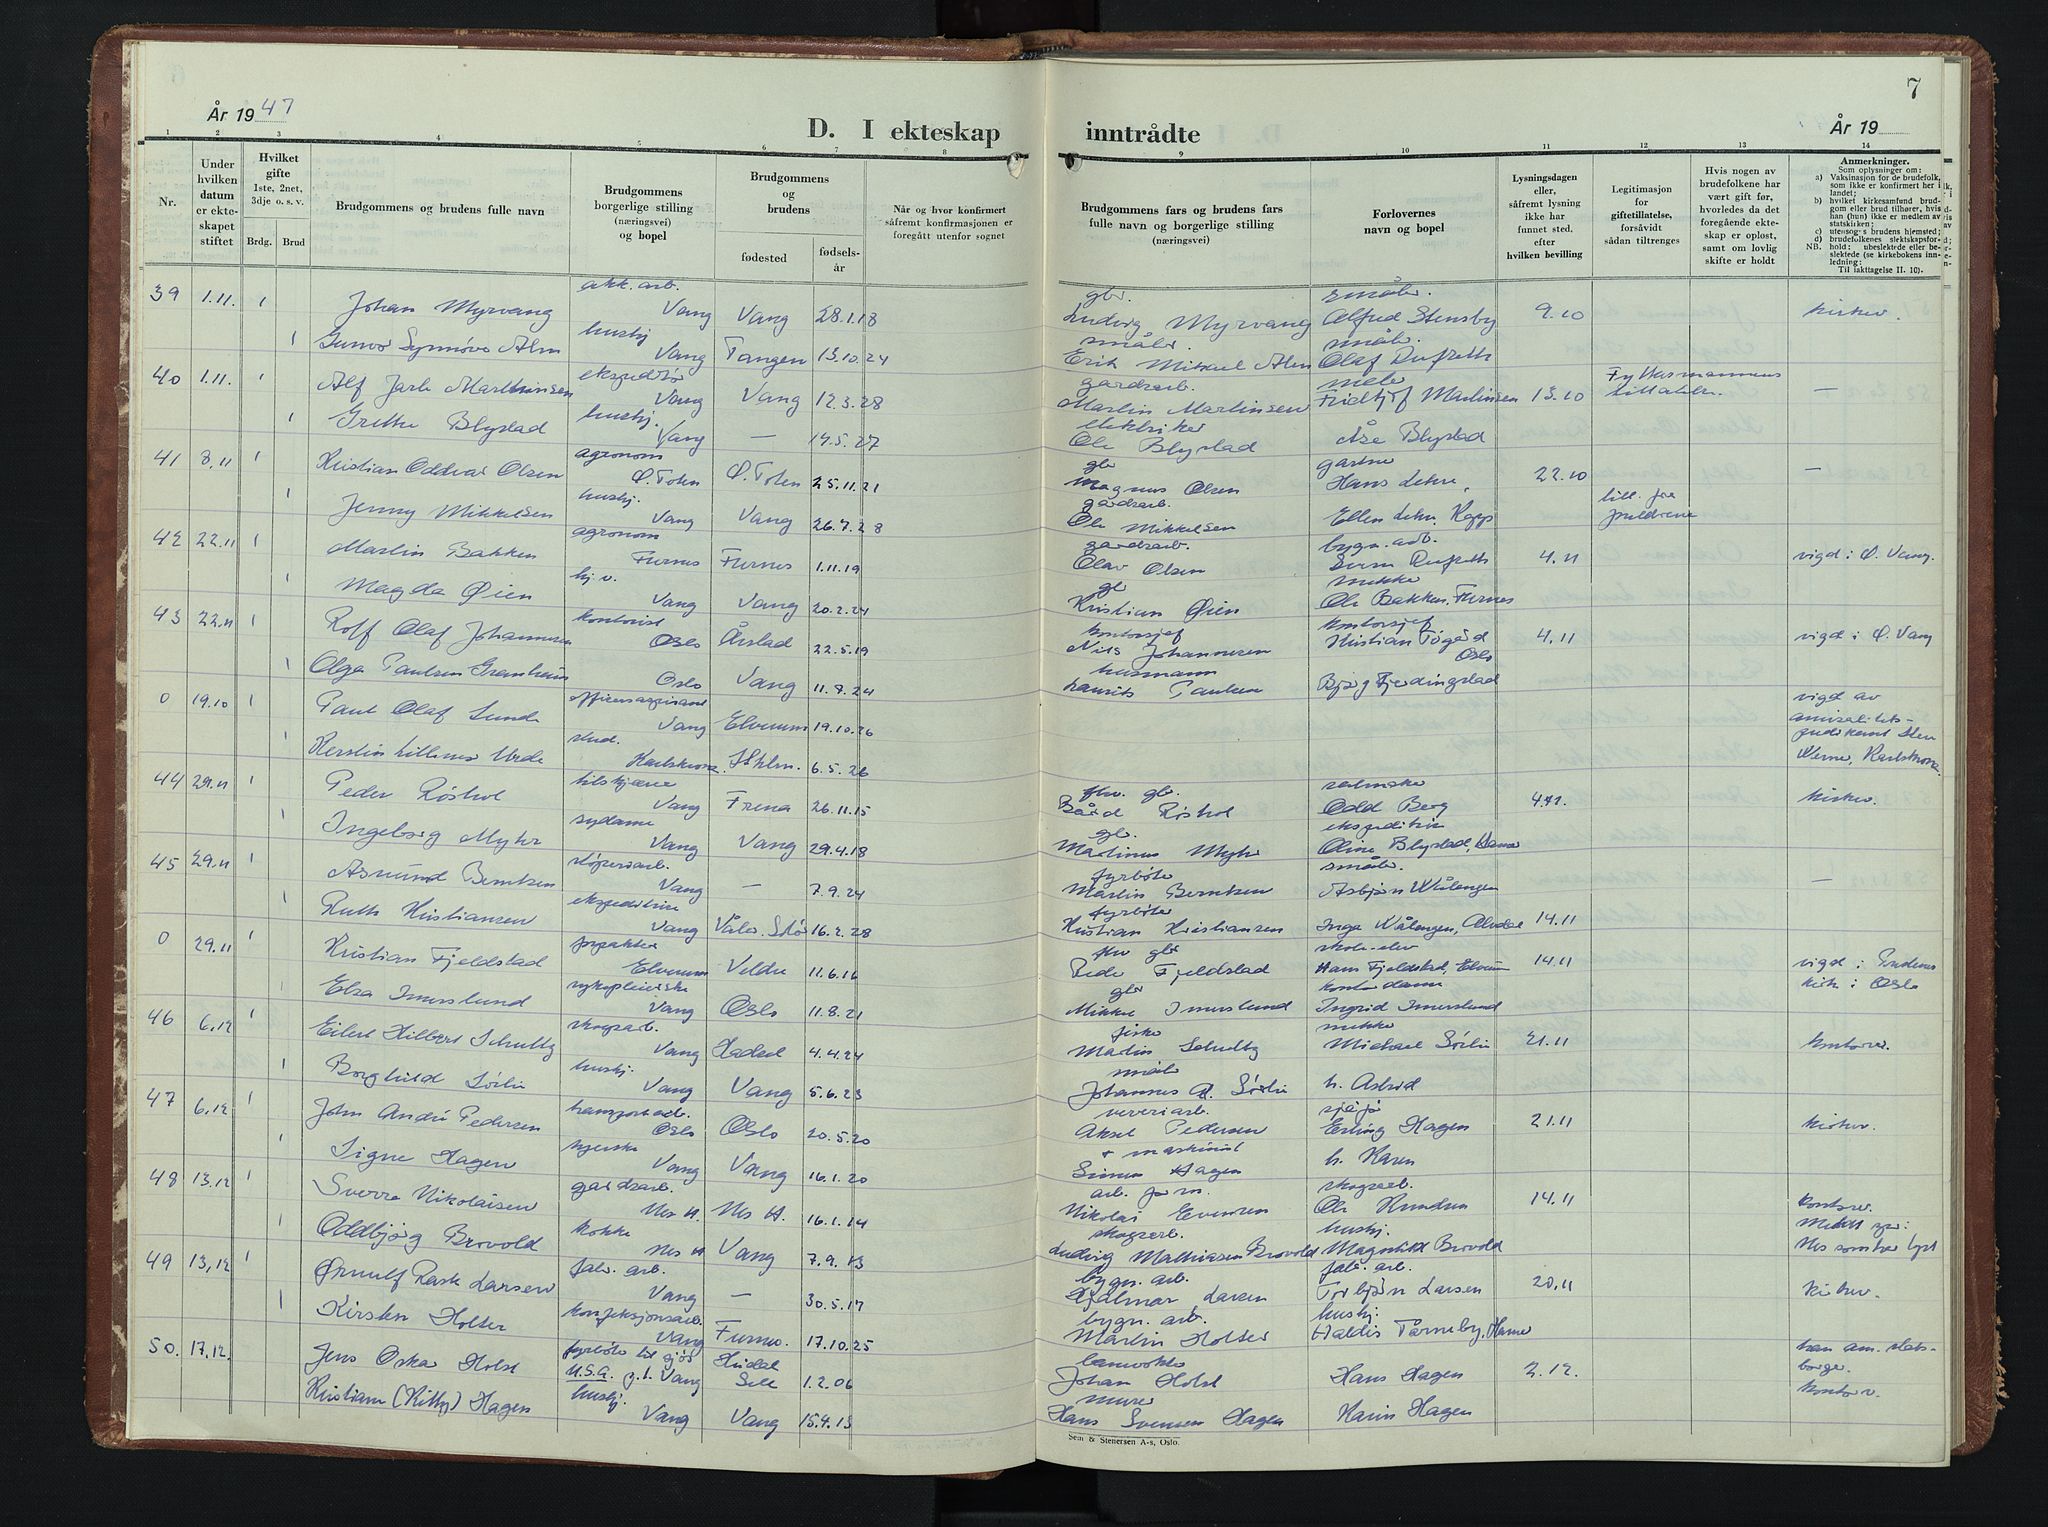 År 1947
D. I ekteskap inntrådte
7
År 19
1 2 3 4 5 6 7 8 9 10 11 12 13 14
Nr.
Under hvilken datum er ekteskapet stiftet
Hvilket gifte 1ste, 2net, 3dje o. s. v.
Brdg. Brud
Brudgommens og brudens fulle navn
Brudgommens borgerlige stilling (næringsvei) og bopel
Brudgommens og brudens
fødested
fødselsår
Når og hvor konfirmert såfremt konfirmasjonen er foregått utenfor sognet
Brudgommens fars og brudens fars fulle navn og borgerlige stilling (næringsvei)
Forlovernes navn og bopel
Lysningsdagen eller, såfremt lysning ikke har funnet sted, efter hvilken bevilling
Legitimasjon for giftetillatelse, forsåvidt sådan tiltrenges
Hvis nogen av brudefolkene har vært gift før, hvorledes da det foregående ekteskap er opløst, samt om lovlig skifte er holdt
Anmerkninger.
Som oplysninger om:
a) Vaksinasjon for de brudefolk, som ikke er konfirmert her i landet;
b) hvilket kirkesamfund brudgom eller brud tilhører, hvis han (hun) ikke er medlem av statskirken;
c) utensogns brudens hjemsted;
d) brudefolkenes slektskapsforhold: ubeslektede eller beslektede (se kirkebokens innledning;
NB. Til iakttagelse II. 10).
39 1.11. 1 Johan Myrvang Vang Vang 28.1.18 gbr. Ludvig Myrvang småbr. Alfred Stensby 9.10 kirkev.
1 Gunvor Synnøve Alm hushj Vang Tangen 13.10.24 småbr. Erik Mikael Alm småbr. Olaf Dufseth
40 1.11. 1 Alf Jarle Marthinsen Vang Vang 12.3.28 gardsarb. Martin Martinsen Fridtjof Martinsen 13.10 —
1 Grethe Blystad hushj. Vang — 14.5.27 elektriker Ole Blystad Åse Blystad
41 8.11 1 Kristian Oddvar Olsen agronom Ø. Toten Ø. Toten 25.11.21 gbr Magnus Olsen Hans Lehre, 22.10 —
1 Jenny Mikkelsen hushj. Vang Vang 26.7.28 gårdsarb. Ole Mikkelsen
42 22.11 1 Martin Bakken agronom Furnes Furnes 1.11.19 gardsarb. Olav Olsen bygn. arb. 4.11 vigd i Ø. Vang.
1 Magda Øien Vang Vang 20.2.24 gbr Kristian Øien Ole Bakken, Furnes
43 22.11 1 Rolf Olaf Johannesen kontorist Oslo Årstad 22.5.19 kontorsjef Nils Johannesen kontorsjef Oslo 4.11 vigd i Ø. Vang
1 Olga Paulsen Granheim Oslo Vang 11.7.24 husmann Laurits Paulsen
0 19.10 1 Paul Olaf Lunde Vang Elverum 19.10.26 vigd av
1 stud. Karlskrona Sthlm. 6.5.26 Karlskrona.
44 29.11 1 Peder Røshol Vang Frena 26.11.15 fhv. gbr. Bård Røshol Odd Berg kirkev.
1 Ingeborg Myhr sydame Vang Vang 29.4.18 gbr. Martinus Myhr ekspeditrise Oline Blystad, Hamar
45 29.11 1 Asmund Berntsen Vang — 7.9.24 fyrbøter Martin Berntsen småbr. —
1 Ruth Kristiansen ekspeditrise Vang Våler. Solør 16.2.28 fyrbøter Kristian Kristiansen 14.11
0 29.11 1 Kristian Fjeldstad forpakter Elverum Veldre 11.6.16 fhv gbr Peder Fjeldstad skole-elev Hans Fjeldstad, Elverum 14.11 vigd i
1 Elsa Imerslund sykepleierske Vang Oslo 11.8.21 gbr Mikkel Imerslund kontordame Ingrid Imerslund kirke i Oslo
46 6.12 1 Eilert Hilbert Schultz skogsarb. Vang Hadsel 4.4.24 fisker Martin Schultz Michael Sørlie 21.11 kontorv.
1 Borghild Sørlie hushj Vang Vang 5.6.23 småbr Johannes A. Sørlie h. Astrid
47 6.12 1 John André Pedersen transportarb. Oslo Oslo 20.5.20 veveriarb. Aksel Pedersen Erling Hagen 21.11 kirkev.
1 Signe Hagen syerske Vang Vang 16.1.20 + maskinist Simen Hagen h. Karen
48 13.12 1 Sverre Nikolaisen gardsarb. Nes H. Nes H. 16.1.14 arb. form. Nikolai Evensen skogsarb. Ole Knudsen 14.11 kontorv.
1 Oddbjørg Brovold kokke Nes H Vang 7.9.13 skogsarb. Ludvig Mathiasen Brovold hushj. Magnhild Brovold
49 13.12 1 Ørnulf Rask Larsen fabr. arb. Vang — 30.5.17 bygn. arb. Hjalmar Larsen fab. arb. Torbjørn Larsen 20.11 kirkev.
1 Kirsten Holter konfeksjonsarb. Vang Furnes. 17.10.25 bygn. arb. Martin Holter hushj. Haldis Tørneby, Hamar
50. 17.12. Jens Oskar Holst fyrbøter til sjøs U.S.A. p.t. Vang 1.2.06 Johan Holst Hans Hagen 2.12. han am. statsborger.
Kristiane (Kitty) Hagen hushj. Vang Vang 15.4.13 murer Hans Svensen Hagen Karin Hagen kontorv.
Sem & Stenersen A-s, Oslo.